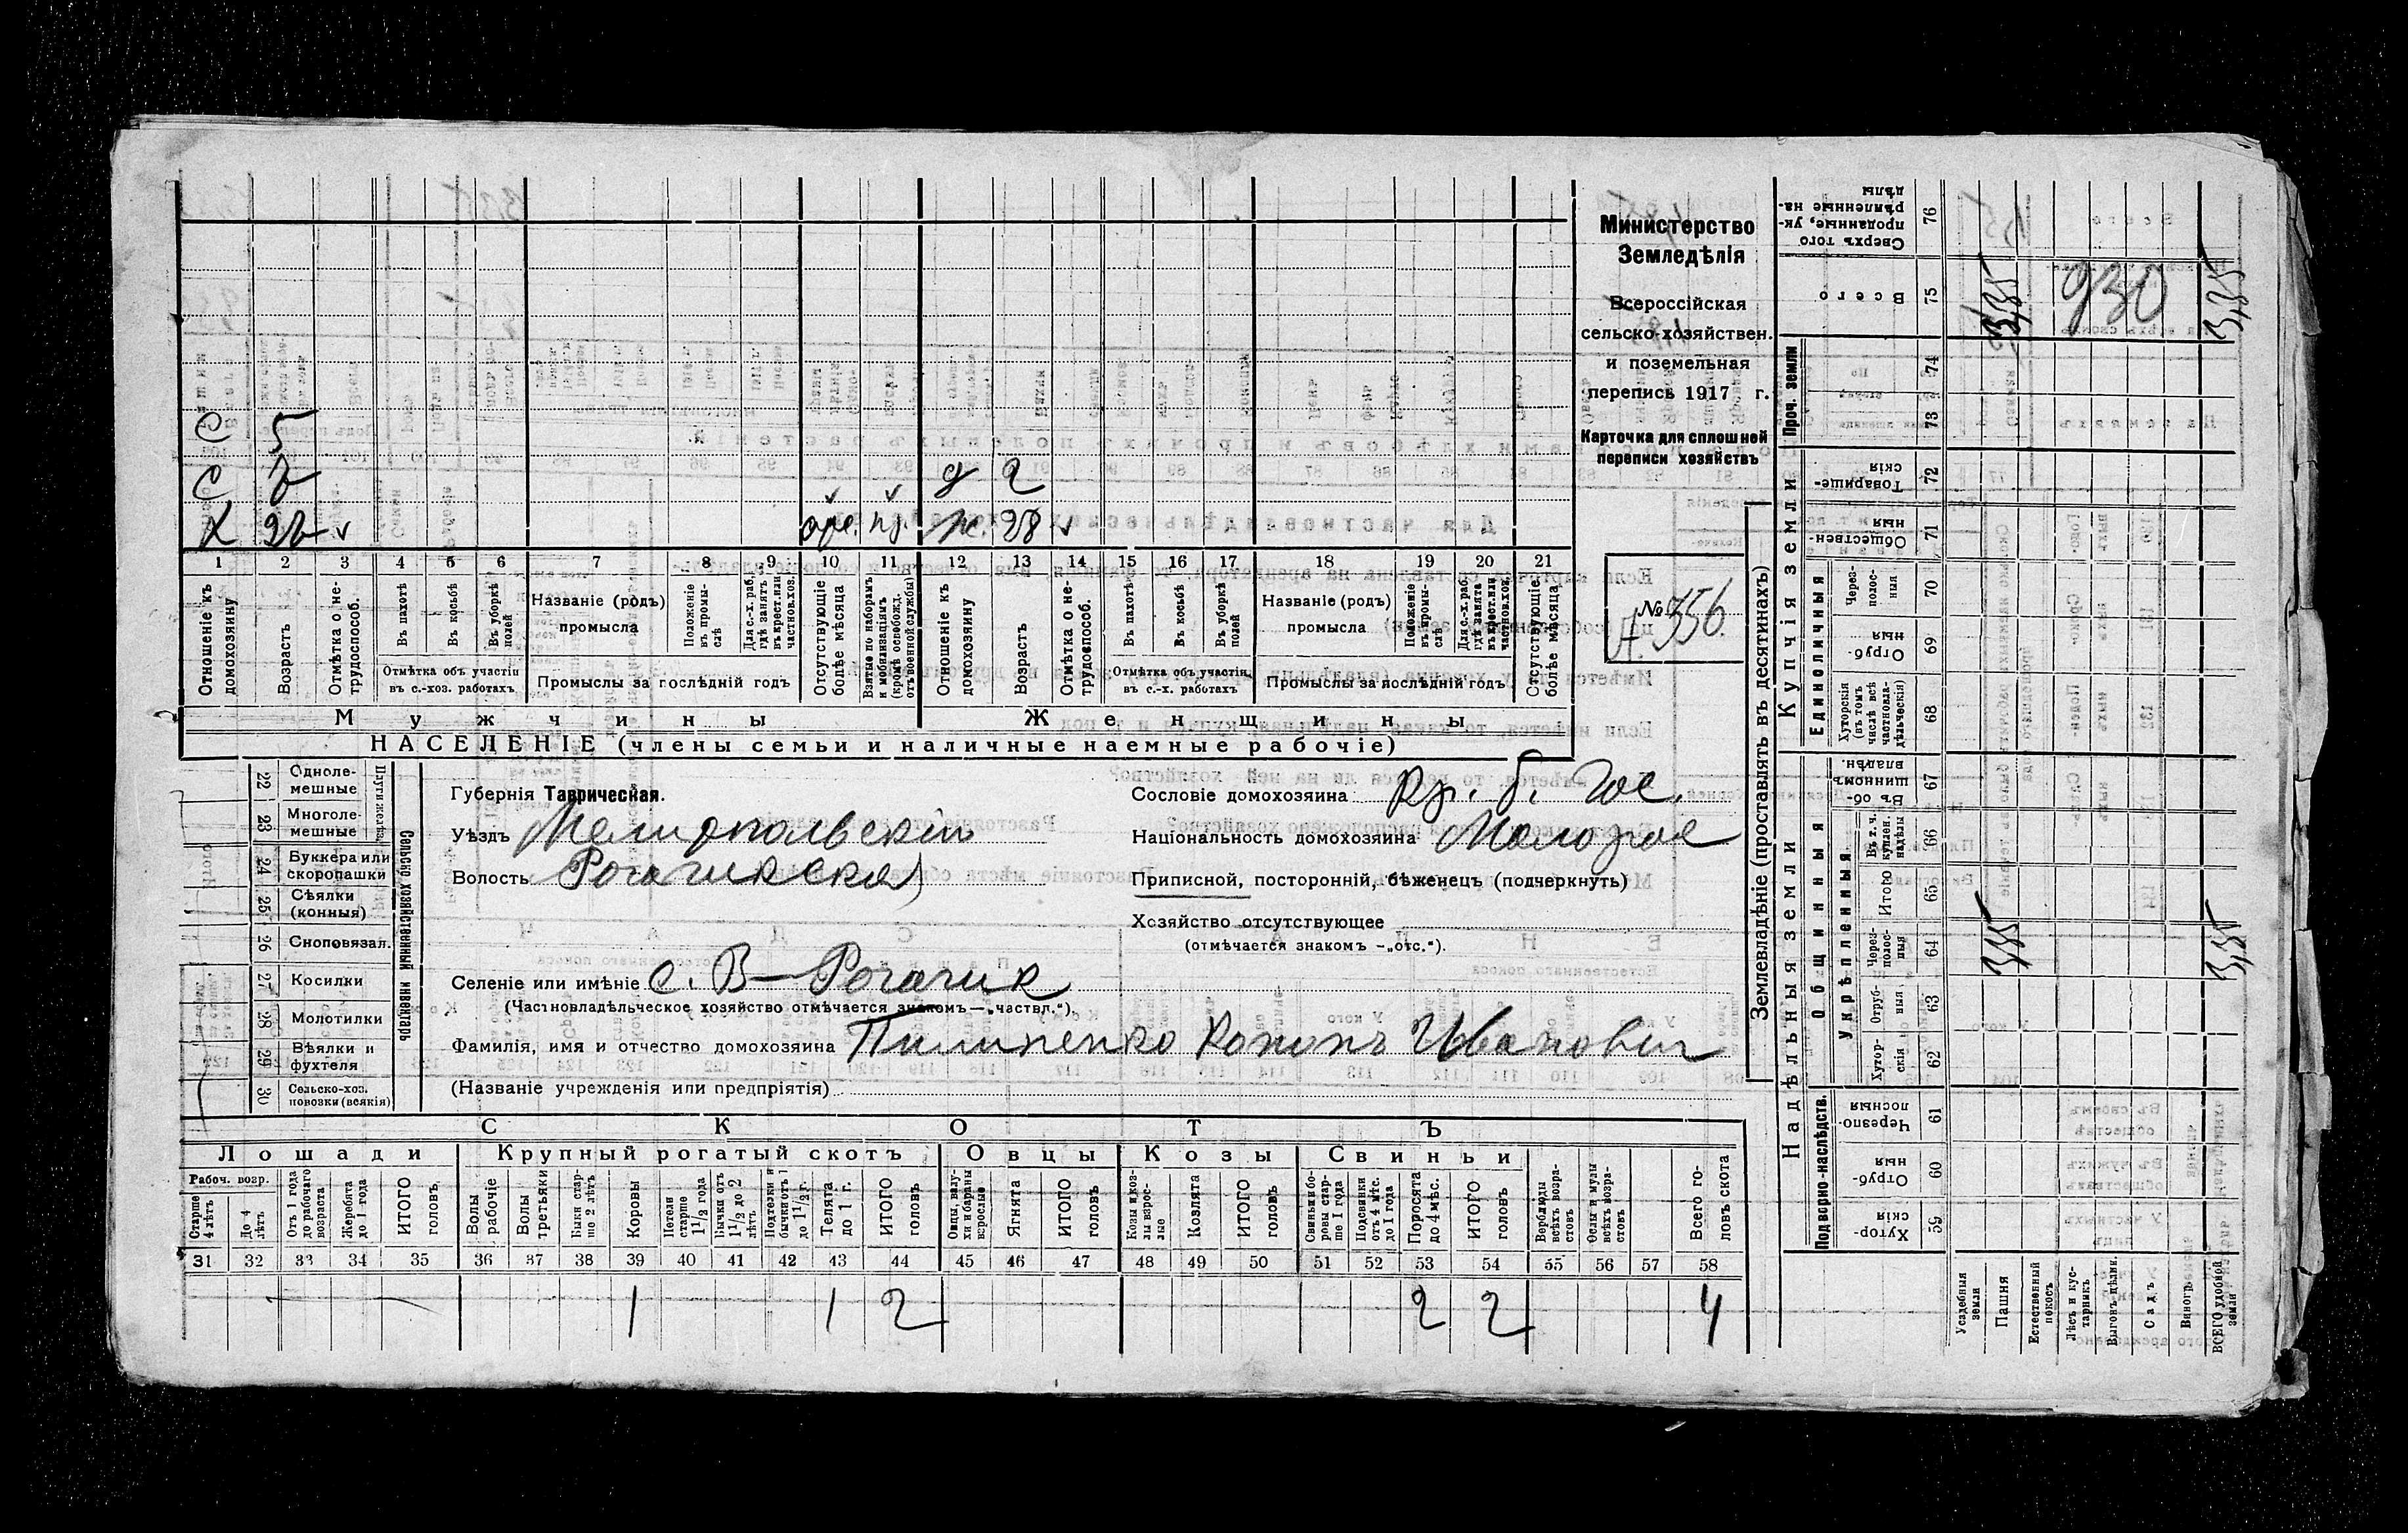 Министерство
Земледѣлія
Всероссійская
сельско-хозяйствен.
и поземельная
перепись 1917 г.
Карточка для сплошной
переписи хозяйствъ
№ 356.
С 5
С 7
Х
д 2
ж. 28 v
1 2 3 4 5 6 7 8 9 10 11 12 13 14 15 16 17 18 19 20 21
Отношеніе къ домохозяину
Возрастъ
Отмѣтка о не-трудоспособ.
Въ пахотѣ
Въ косьбѣ
Въ уборкѣ полей
Отмѣтка объ участіи въ с.-хоз. работахъ
Названіе (родъ) промысла
Положеніе въ промы-слѣ
Для с.-х. раб. гдѣ занятъ въ крест. или частнов. хоз.
Промыслы за послѣдній годъ
Отсутствующіе болѣе мѣсяца
Взятые по наборамъ и мобилизаціямъ (кромѣ освобожд. отъ военной службы)
Отношеніе къ домохозяину
Возрастъ
Отмѣтка о не-трудоспособ.
Въ пахотѣ
Въ косьбѣ
Въ уборкѣ полей
Отмѣтка объ участіи въ с.-х. работахъ
Названіе (родъ) промысла
Положеніе въ промы-слѣ
Для с.-х. раб. гдѣ занята въ крест. или частнов. хоз.
Промыслы за послѣдній годъ
Отсутствующіе болѣе мѣсяца
Мужчины
Женщины
НАСЕЛЕНІЕ (члены семьи и наличные наемные рабочіе)
Сельско хозяйственный инвентарь
22 Одноле-мешные
23 Многоле-мешные
24 Буккера или скоропашки
25 Сѣялки (конныя)
26 Сноповязал.
27 Косилки
28 Молотилки
29 Вѣялки и фухтеля
30 Сельско-хоз. повозки (всякія)
Губернія Таврическая.
Уѣздъ Мелитопольскій
Волость Рогачикская
Селеніе или имѣніе с. В-Рогачик
(Частновладѣльческое хозяйство отмѣчается знакомъ—„частвл.“).
Фамилія, имя и отчество домохозяина Пилипенко Кононъ Иванович
(Названіе учрежденія или предпріятія)
Сословіе домохозяина
Національность домохозяина Малорос
Приписной, посторонній, бѣженецъ (подчеркнуть)
Хозяйство отсутствующее
(отмѣчается знакомъ —„отс.“).
СКОТЪ
Лошади
Крупный рогатый скотъ
Овцы
Козы
Свиньи
Рабоч. возр.
Старше 4 лѣтъ
До 4 лѣтъ
Отъ 1 года до рабочаго возраста
Жеребята до 1 года
ИТОГО головъ
Волы рабочіе
Волы третьяки
Быки стар-ше 2 лѣтъ
Коровы
Нетели старше 1 1/2 года
Бычки отъ 1 1/2 до 2 лѣтъ
Подтелки и бычки отъ 1 до 1 1/2 г.
Телята до 1 г.
ИТОГО головъ
Овцы, валу-хи и бараны взрослые
Ягнята
ИТОГО головъ
Козы и коз-лы взрос-лые
Козлята
ИТОГО головъ
Свиньи и бо-ровы стар-ше 1 года
Подсвинки отъ 4 мѣс. до 1 года
Поросята до 4 мѣс.
ИТОГО головъ
Верблюды всѣхъ возра-стовъ
Ослы и мулы всѣхъ возра-стовъ
Всего го-ловъ скота
31 32 33 34 35 36 37 38 39 40 41 42 43 44 45 46 47 48 49 50 51 52 53 54 55 56 57 58
1 1 2 2 2 4
Землевладѣніе (проставлять въ десятинахъ)
Надѣльныя земли
Купчія земли
Проч. земли
Подворно-наслѣдств.
Общинныя
Укрѣпленныя
Единоличныя
Сверхъ того проданные, ук-рѣпленные на-дѣлы 76
Всего 75
74
73
Товарище-скія 72
Обществен-ныя 71
Через-полос-ныя 70
Отруб-ныя 69
Хуторскія (въ томъ числѣ всѣ частновла-дѣльческія) 68
Въ об-щинномъ владѣн. 67
Въ т. ч. куплен. надѣлы 66
Итого 65
Через-полос-ныя 64
Отруб-ныя 63
Хутор-скія 62
Черезпо-лосныя 61
Отруб-ныя 60
Хутор-скія 59
Усадебныя земли
Пашня
Естественный покосъ
Лѣсъ и кус-тарникъ
Выгонъ цѣлин.
Садъ
Виноград
ВСЕГО удобной земли
930
3,35
3,35
3,35
3,35